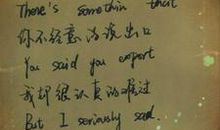 There's somethin that
你不经意的说出口
You said you expert
我却很认真的难过
But I seriously sad.